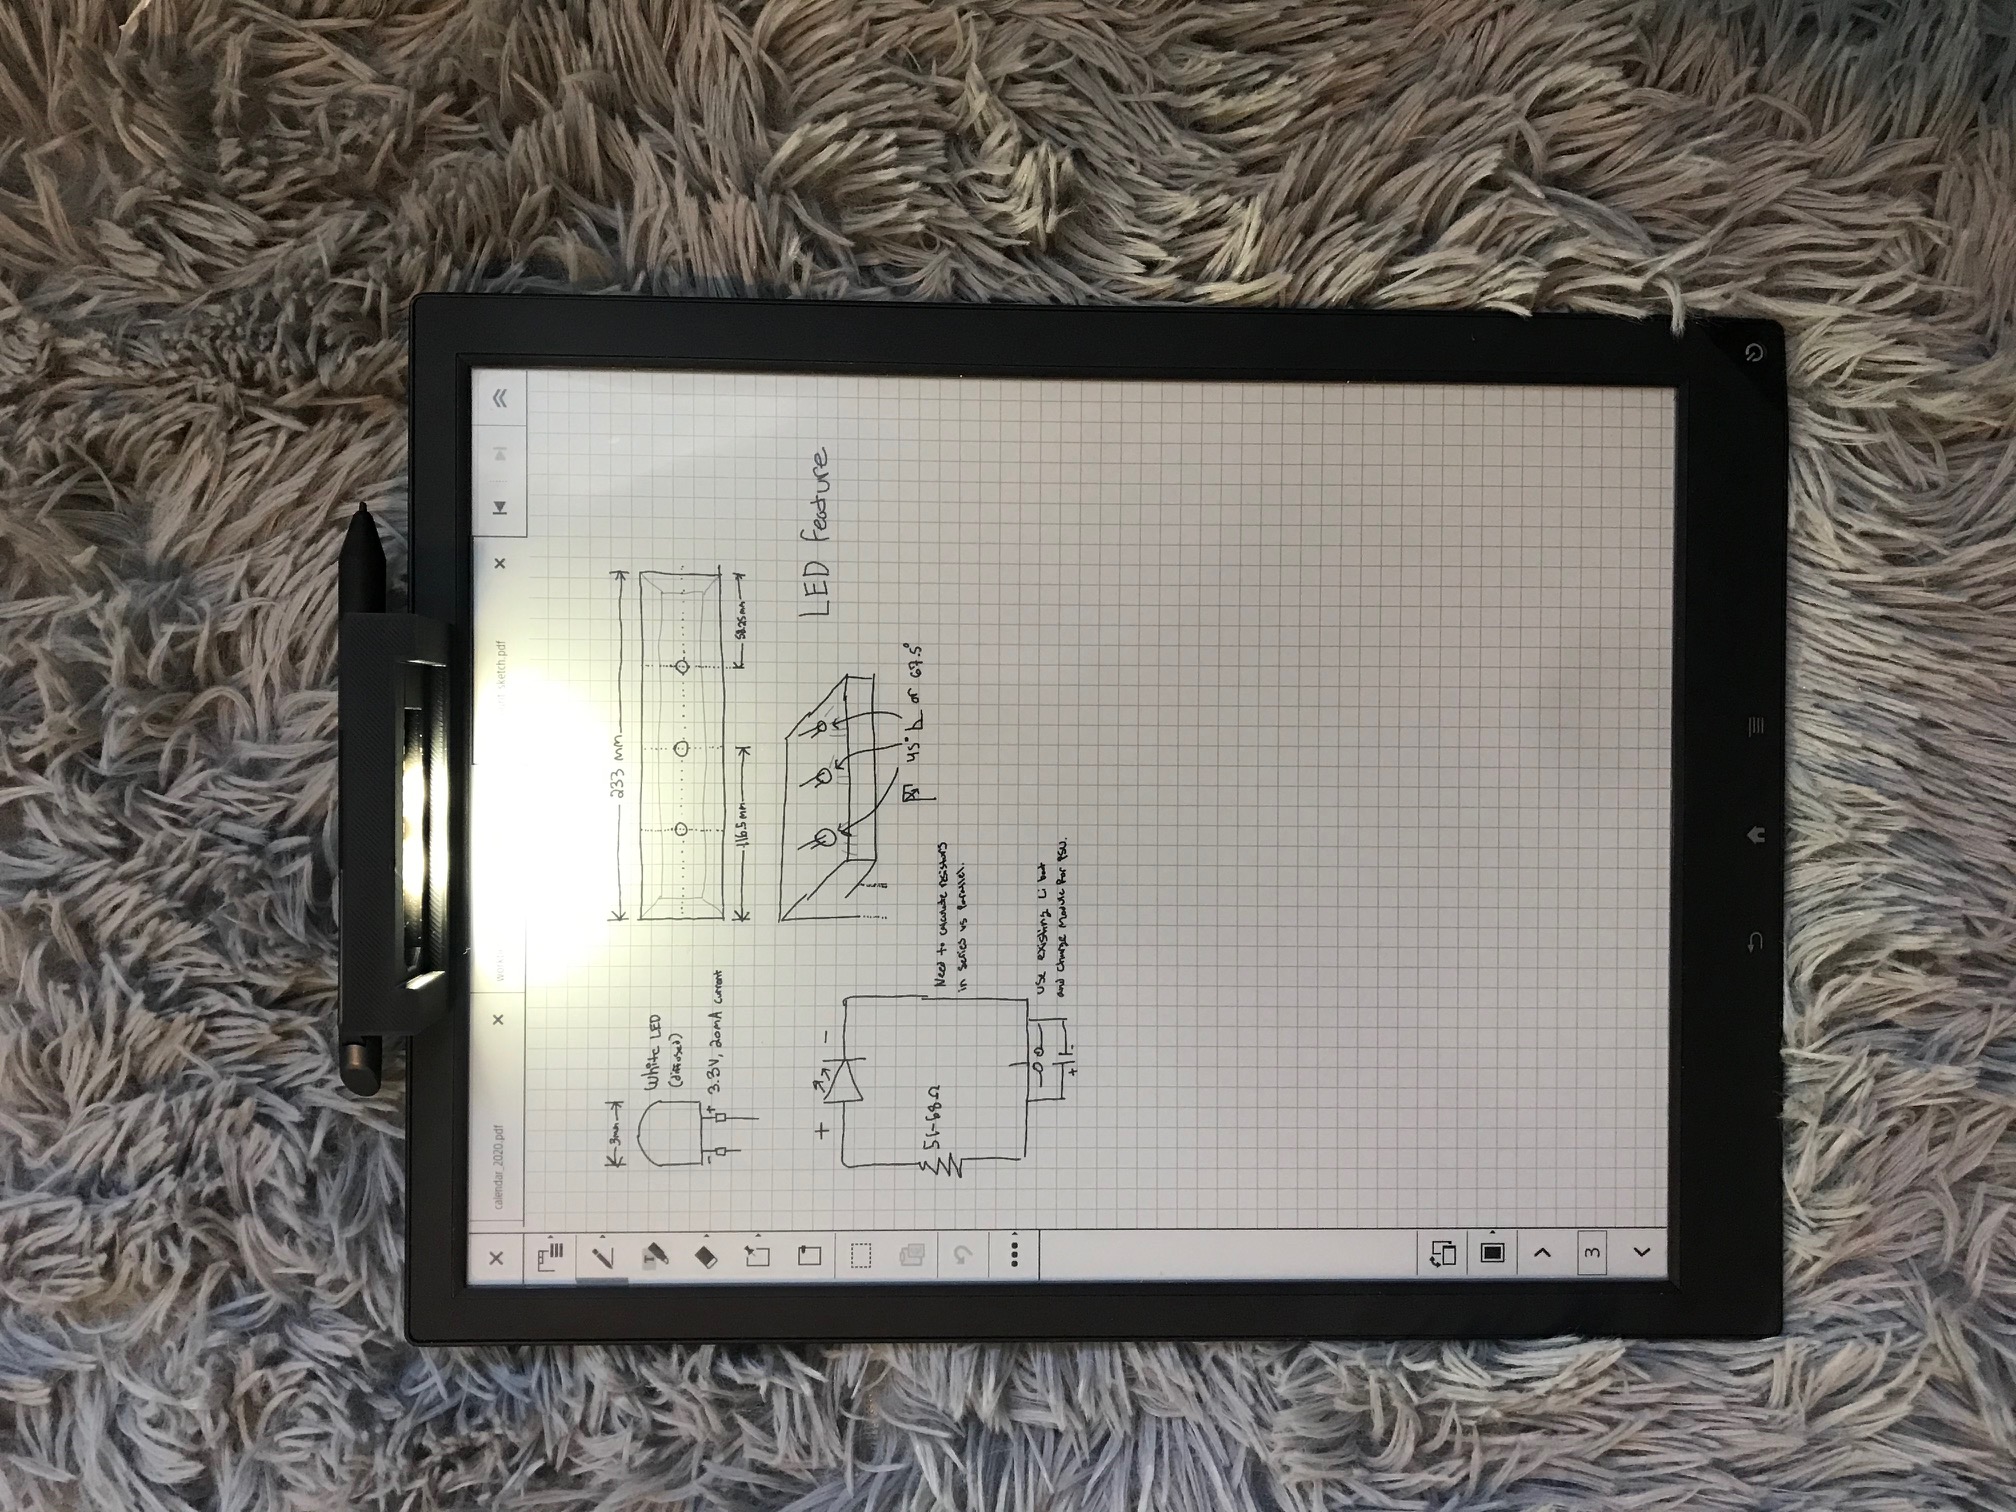 calendar_2020.pdf
sketch.pdf
3mm
White LED
(diffused)
- +
3.3V, 20mA current
233 mm
116.5mm
58.25mm
LED feature
45° or 67.5°
+ -
51-68Ω
Need to calculate resistors
in series vs parallel.
Use existing Li bat
and charge module for PSU.
+ -
3